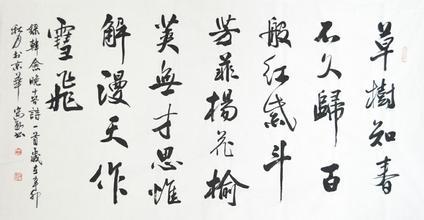 草樹知春
不久歸百
般紅紫斗
芳菲楊花榆
荚無才思惟
解漫天作
雪飛
錄韓愈晚春詩一首歲在辛卯
秋月於京華